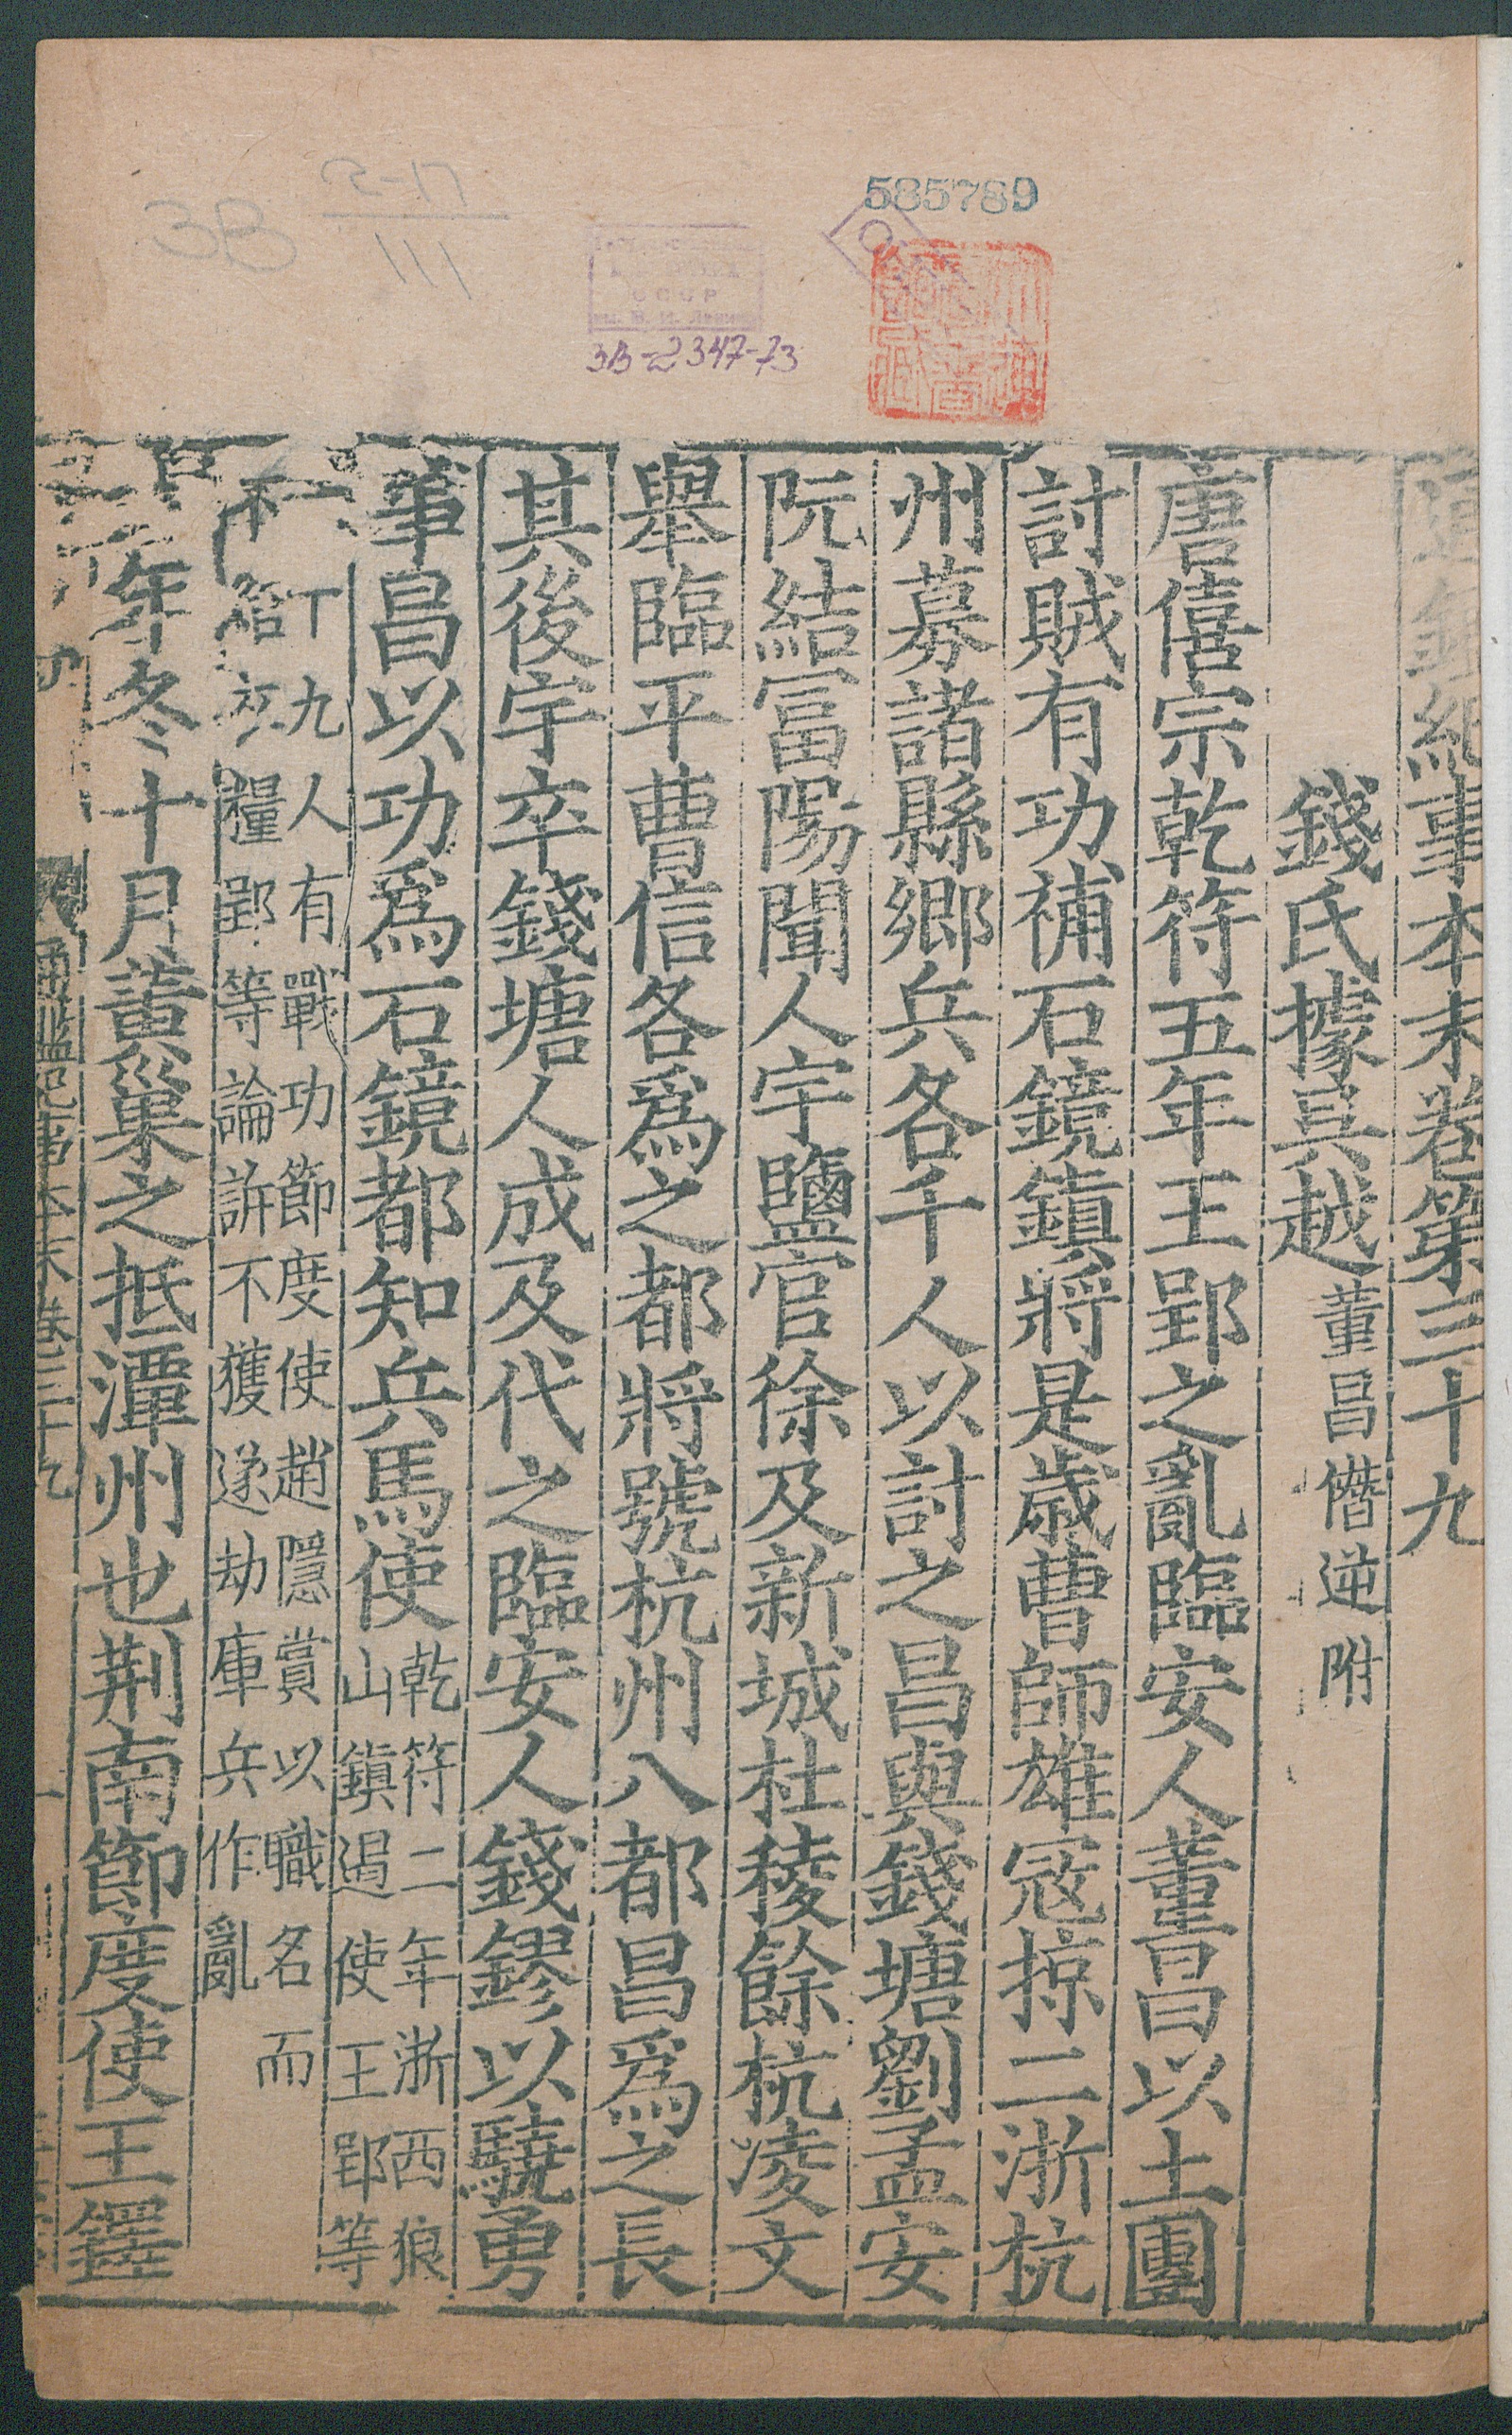 585789
СССР
ЗВ-2347-73
3B 2-17
111
通鑑紀事本末卷第三十九
錢氏據吳越 董昌僭逆附
唐僖宗乾符五年王郢之亂臨安人董昌以土團
討賊有功補石鏡鎮將是歲曹師雄寇掠二浙杭
州募諸縣鄉兵各千人以討之昌與錢塘劉孟安
阮結冨陽聞人宇鹽官徐及新城杜稜餘杭凌文
舉臨平曹信各爲之都將號杭州八都昌爲之長
其後宇卒錢塘人成及代之臨安人錢鏐以驍勇
事昌以功爲石鏡都知兵馬使
乾符二年浙西狼
山鎮遏使王郢等
六十九人有戰功節度使趙隱賞以職名而
不給衣糧郢等論訴不獲遂劫庫兵作亂
年冬十月黃巢之抵潭州也荆南節度使王鐸
通鑑紀事本末卷三十九